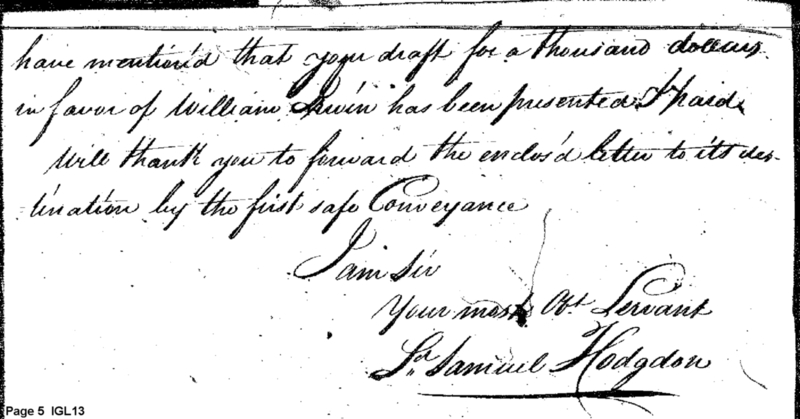 have mention'd that your draft for a thousand dollars
in favor of William Irwin has been presented & paid
Will thank you to forward the enclos'd letter to its des-
tination by the first safe Conveyance
I am Sir
Your most Obt Servant
Samuel Hodgdon
Page 5 IGL13